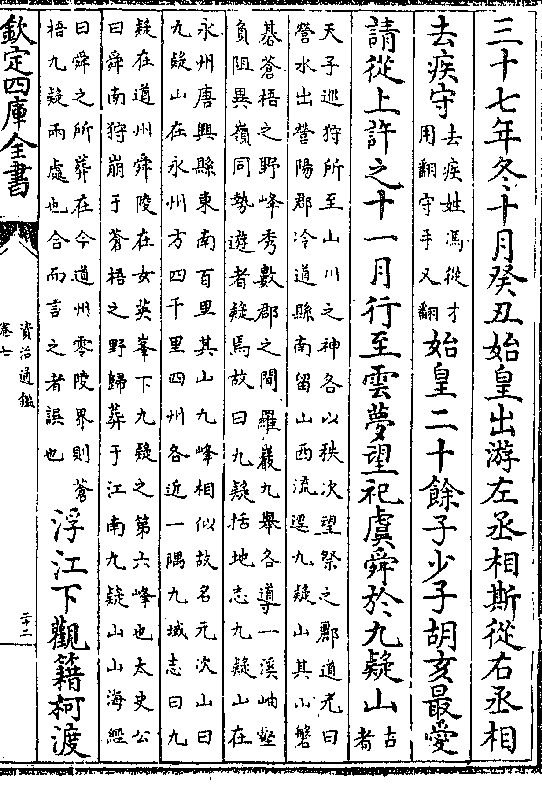 三十七年冬十月癸丑始皇出游左丞相斯從右丞相
去疾守
去疾姓馮從才
用翻守手又翻
始皇二十餘子少子胡亥最愛
請從上許之十一月行至雲夢望祀虞舜於九疑山
古
者
天子巡狩所至山川之神各以秩次望祭之酈道元曰
營水出營陽郡泠道縣南留山西流逕九疑山其山磐
碁蒼梧之野峰秀數郡之間羅巖九舉各導一溪岫壑
負阻異嶺同勢遊者疑焉故曰九疑括地志九疑山在
永州唐興縣東南百里其山九峰相似故名元次山曰
九疑山在永州方四千里四州各近一隅九域志曰九
疑在道州舜陵在女英峯下九疑之第六峰也太史公
曰舜南狩崩于蒼梧之野歸葬于江南九疑山山海經
曰舜之所葬在今道州零陵界則蒼
梧九疑兩處也合而言之者誤也
浮江下觀籍柯渡
欽定四庫全書
資治通鑑
卷七
二十二